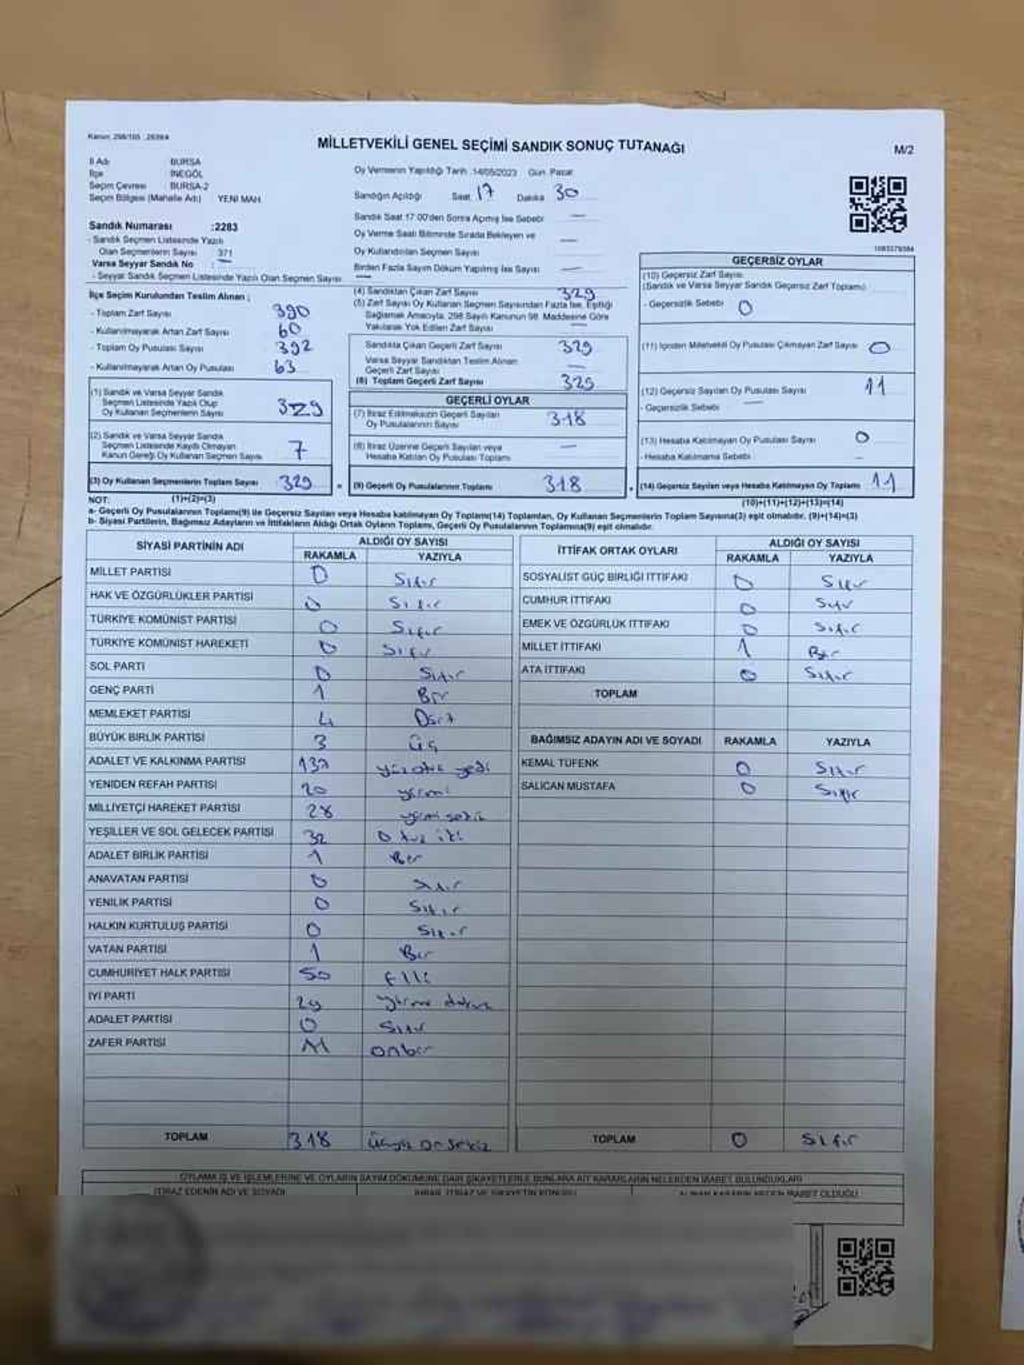 MİLLETVEKİLİ GENEL SEÇİMİ SANDIK SONUÇ TUTANAĞI
M/2
İl Adı BURSA
İlçe İNEGÖL
Seçim Çevresi : BURSA-2
Seçim Bölgesi (Mahalle Adı) YENİ MAH.
Oy Vermenin Yapıldığı Tarih :14/05/2023 Gün: Pazar
Sandığın Açıldığı Saat 17 Dakika 30
Sandık Saat 17:00'den Sonra Açılmış İse Sebebi —
Oy Verme Saati Bitiminde Sırada Bekleyen ve
Oy Kullandırılan Seçmen Sayısı —
Birden Fazla Sayım Döküm Yapılmış İse Sayısı —
Sandık Numarası :2283
- Sandık Seçmen Listesinde Yazılı
Olan Seçmenlerin Sayısı 371
Varsa Seyyar Sandık No : —
- Seyyar Sandık Seçmen Listesinde Yazılı Olan Seçmen Sayısı —
İlçe Seçim Kurulundan Teslim Alınan ;
- Toplam Zarf Sayısı 390
- Kullanılmayarak Artan Zarf Sayısı 60
- Toplam Oy Pusulası Sayısı 392
- Kullanılmayarak Artan Oy Pusulası 63
(1) Sandık ve Varsa Seyyar Sandık
Seçmen Listesinde Yazılı Olup
Oy Kullanan Seçmenlerin Sayısı
(2) Sandık ve Varsa Seyyar Sandık
Seçmen Listesinde Kayıtlı Olmayan
Kanun Gereği Oy Kullanan Seçmen Sayısı 7
(3) Oy Kullanan Seçmenlerin Toplam Sayısı 329
(1)+(2)=(3)
(4) Sandıktan Çıkan Zarf Sayısı 329
(5) Zarf Sayısı Oy Kullanan Seçmen Sayısından Fazla İse, Eşitliği
Sağlamak Amacıyla, 298 Sayılı Kanunun 98. Maddesine Göre
Yakılarak Yok Edilen Zarf Sayısı
Sandıkta Çıkan Geçerli Zarf Sayısı 329
Varsa Seyyar Sandıktan Teslim Alınan
Geçerli Zarf Sayısı —
(6) Toplam Geçerli Zarf Sayısı 329
GEÇERLİ OYLAR
(7) İtiraz Edilmeksizin Geçerli Sayılan
Oy Pusulalarının Sayısı 318
(8) İtiraz Üzerine Geçerli Sayılan veya
Hesaba Katılan Oy Pusulası Toplamı —
(9) Geçerli Oy Pusulalarının Toplamı 318
GEÇERSİZ OYLAR
(10) Geçersiz Zarf Sayısı
(Sandık ve Varsa Seyyar Sandık Geçersiz Zarf Toplamı)
- Geçersizlik Sebebi 0
(11) İçinden Milletvekili Oy Pusulası Çıkmayan Zarf Sayısı 0
(12) Geçersiz Sayılan Oy Pusulası Sayısı 11
- Geçersizlik Sebebi —
(13) Hesaba Katılmayan Oy Pusulası Sayısı 0
- Hesaba Katılmama Sebebi —
(14) Geçersiz Sayılan veya Hesaba Katılmayan Oy Toplamı 11
(10)+(11)+(12)+(13)=(14)
NOT:
a- Geçerli Oy Pusulalarının Toplamı(9) ile Geçersiz Sayılan veya Hesaba katılmayan Oy Toplamı(14) Toplamları, Oy Kullanan Seçmenlerin Toplam Sayısına(3) eşit olmalıdır. (9)+(14)=(3)
b- Siyasi Partilerin, Bağımsız Adayların ve İttifakların Aldığı Ortak Oyların Toplamı, Geçerli Oy Pusulalarının Toplamına(9) eşit olmalıdır.
SİYASİ PARTİNİN ADI ALDIĞI OY SAYISI
RAKAMLA YAZIYLA
MİLLET PARTİSİ 0 Sıfır
HAK VE ÖZGÜRLÜKLER PARTİSİ 0 Sıfır
TÜRKİYE KOMÜNİST PARTİSİ 0 Sıfır
TÜRKİYE KOMÜNİST HAREKETİ 0 Sıfır
SOL PARTİ 0 Sıfır
GENÇ PARTİ 1 Bir
MEMLEKET PARTİSİ 4 Dört
BÜYÜK BİRLİK PARTİSİ 3 üç
ADALET VE KALKINMA PARTİSİ 137 yüzotuz yedi
YENİDEN REFAH PARTİSİ 20 yirmi
MİLLİYETÇİ HAREKET PARTİSİ 28 yirmi sekiz
YEŞİLLER VE SOL GELECEK PARTİSİ 32 Otuz iki
ADALET BİRLİK PARTİSİ 1 Bir
ANAVATAN PARTİSİ 0 Sıfır
YENİLİK PARTİSİ 0 Sıfır
HALKIN KURTULUŞ PARTİSİ 0 Sıfır
VATAN PARTİSİ 1 Bir
CUMHURİYET HALK PARTİSİ 50 Elli
İYİ PARTİ 29 yirmi dokuz
ADALET PARTİSİ 0 Sıfır
ZAFER PARTİSİ 11 onbir
TOPLAM 318 üçyüz on sekiz
İTTİFAK ORTAK OYLARI ALDIĞI OY SAYISI
RAKAMLA YAZIYLA
SOSYALİST GÜÇ BİRLİĞİ İTTİFAKI 0 Sıfır
CUMHUR İTTİFAKI 0 Sıfır
EMEK VE ÖZGÜRLÜK İTTİFAKI 0 Sıfır
MİLLET İTTİFAKI 1 Bir
ATA İTTİFAKI 0 Sıfır
TOPLAM
BAĞIMSIZ ADAYIN ADI VE SOYADI RAKAMLA YAZIYLA
KEMAL TÜFENK 0 Sıfır
SALİCAN MUSTAFA 0 Sıfır
TOPLAM 0 Sıfır
OYLAMA İŞ VE İŞLEMLERİNE VE OYLARIN SAYIM DÖKÜMÜNE DAİR ŞİKAYETLERLE BUNLARA AİT KARARLARIN NELERDEN İBARET BULUNDUKLARI
İTİRAZ EDENİN ADI VE SOYADI